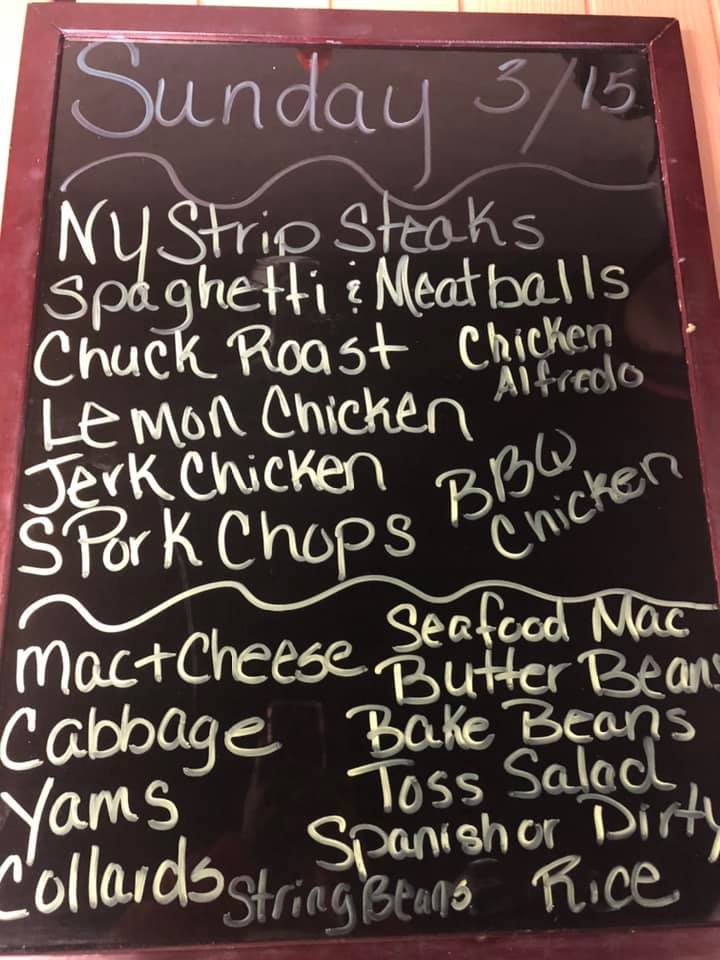 Sunday 3/15
NY Strip Steaks
Spaghetti & Meatballs
Chuck Roast
Chicken
Alfredo
Lemon Chicken
Jerk Chicken
BBQ
Chicken
S Pork Chops
Mac+Cheese
Cabbage
Yams
Collards
String Beans
Seafood Mac
Butter Beans
Bake Beans
Toss Salad
Spanish or Dirty
Rice